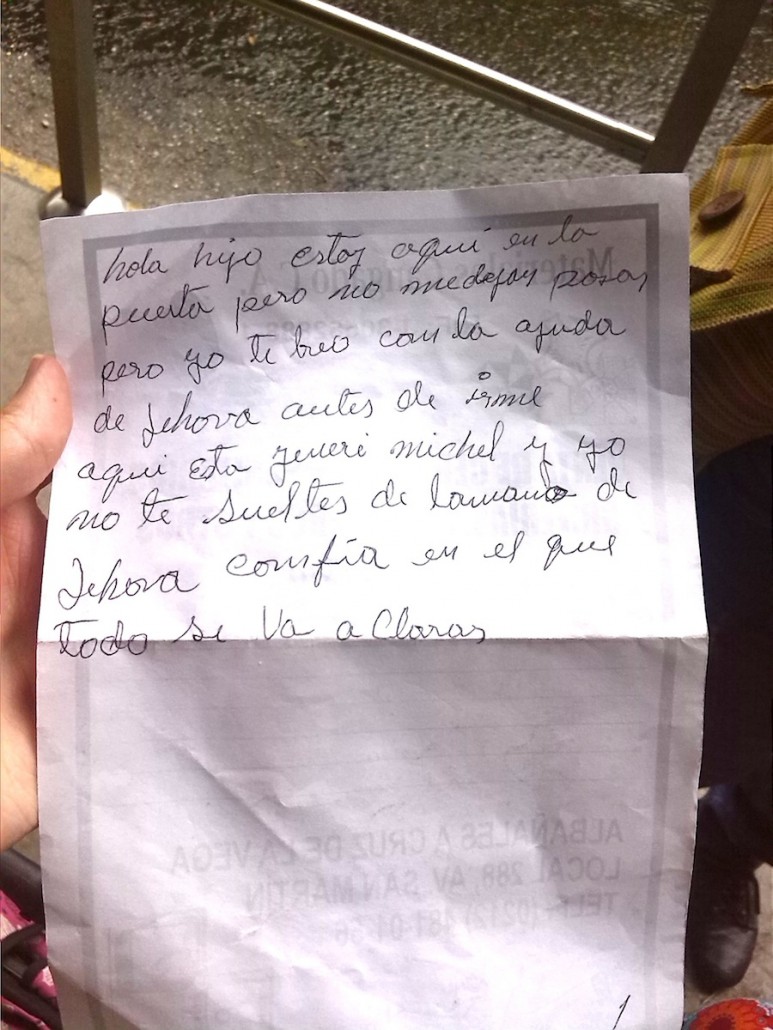 hola hijo estoy aquí en la
puerta pero no medejan pasar
pero yo te breo con la ayuda
de Jehova antes de irme
aqui Esta yeneri michel y yo
no te sueltes de lamano de
Jehova comfía en el que
todo se va a Claras
ALBAÑALES A CRUZ DE LA VEGA
LOCAL 288, AV. SAN MARTÍN